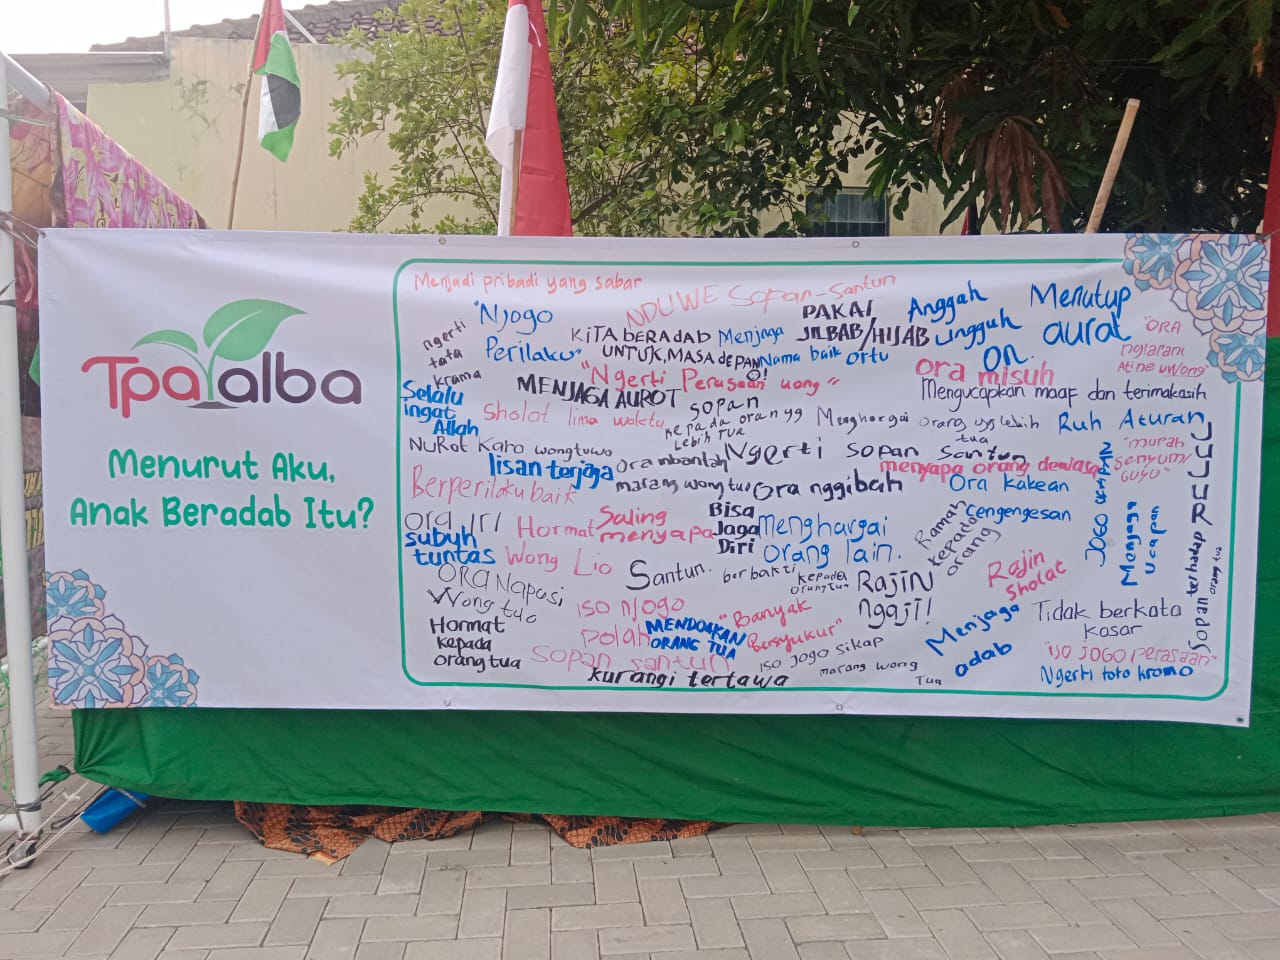 Tpa alba
Menurut Aku,
Anak Beradab Itu?
Menjadi pribadi yang sabar
NDUWE Sopan-Santun
"Njogo
Perilaku"
ngerti
tata
krama
KITA beRADAB
UNTUK MASA dePAN
O!
Menjaga
Nama baik ortu
PAKAI
JILBAB/HIJAB
Anggah
ungguh
Menutup
aurat
on.
"ORA
nglarani
Atine uwong"
Selalu
ingat
Allah
MENJAGA AUROT
"Ngerti Perasaan uong"
ora misuh
Mengucapkan maaf dan terimakasih
Sholat lima waktu
sopan
kepada orang yg
Lebih TUA
Menghargai orang yg lebih
tua
Ruh Aturan
NuRot Karo wongtuwo
lisan terjaga
Ora mbantah
marang wong tuo
Ngerti sopan santun
menyapa orang dewasa
"murah
senyum/
guyu"
Berperilaku baik
Ora nggibah
Ora kakean
cengengesan
ora iri
subuh
tuntas
Hormat
Wong Lio
Saling
menyapa
Bisa
Jaga
Diri
menghargai
orang lain.
Ramah
kepada
orang
Menjaga
ucapan
JUJUR
Sopan terhadap
orang tua
ORA Napusi
Wong tuo
Santun.
berbakti kepada
orang tua
RAJIN
ngaji!
Rajin
Sholat
Hormat
kepada
orang tua
iso njogo
polah
MENDOAKAN
ORANG TUA
"Banyak
Bersyukur"
Menjaga
adab
Tidak berkata
kasar
Sopan santun
iso jogo sikap
marang wong
Tua
"iso JOGO perasaan"
Ngerti toto kromo
kurangi tertawa